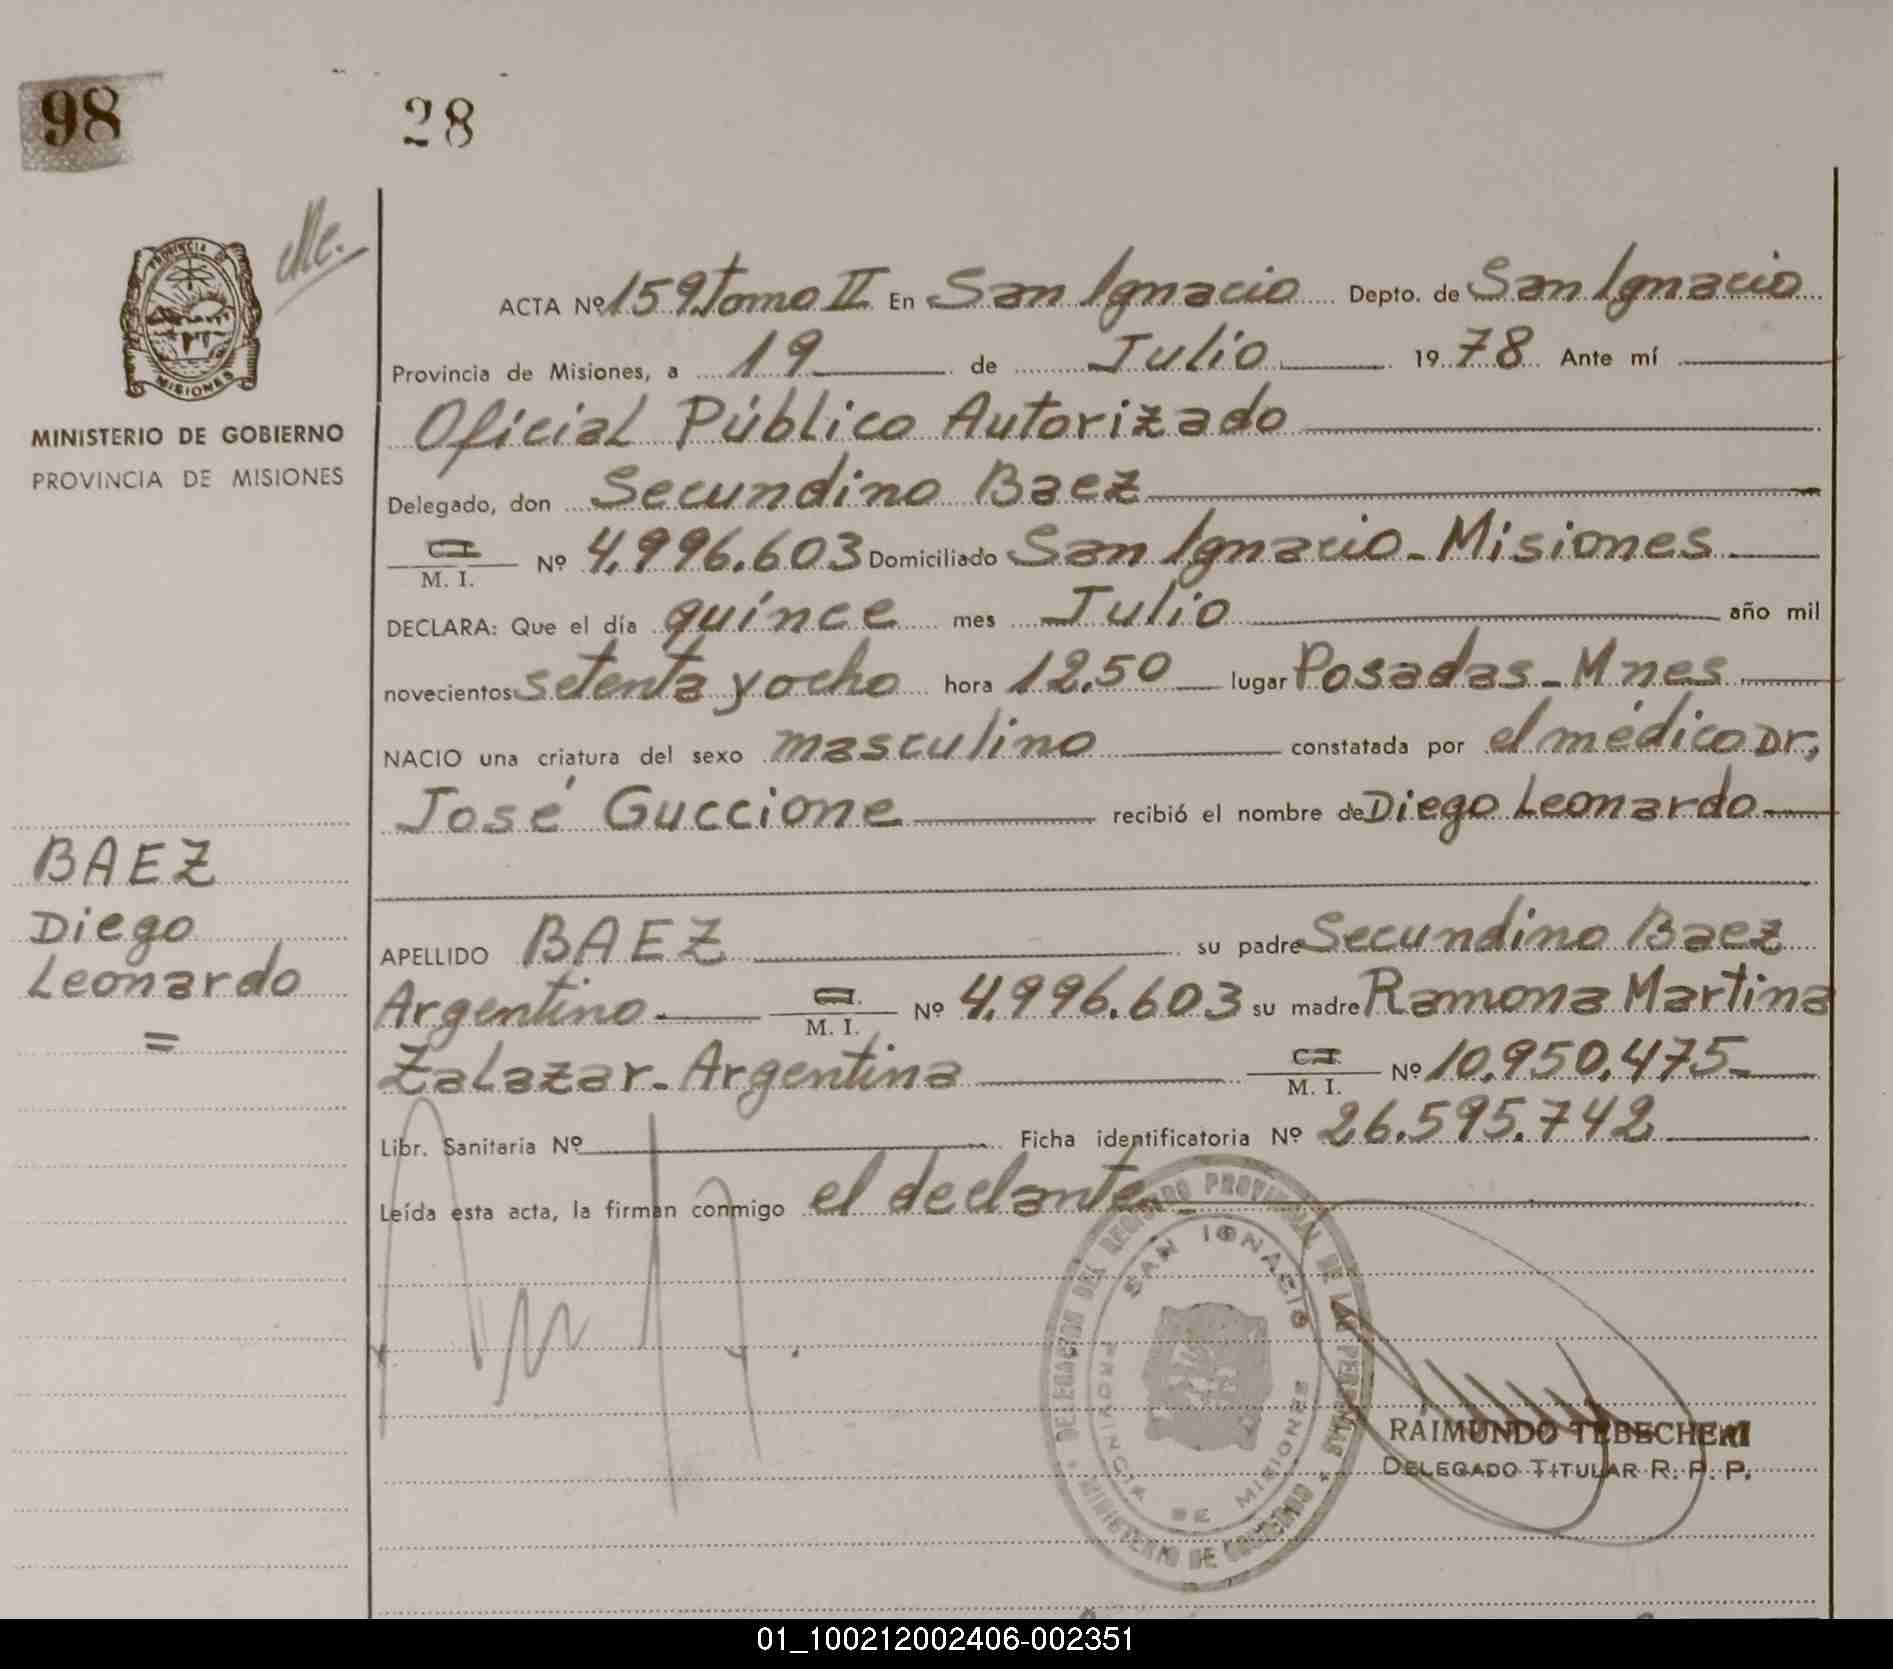 98
28
PROVINCIA DE
MISIONES
MINISTERIO DE GOBIERNO
PROVINCIA DE MISIONES
ACTA Nº 159 tomo II En San Ignacio Depto. de San Ignacio
Provincia de Misiones, a 19 de Julio 1978 Ante mí
Oficial Público Autorizado
Delegado, don Secundino Baez
C.I.
M. I. Nº 4.996.603 Domiciliado San Ignacio - Misiones
DECLARA: Que el día quince mes Julio año mil
novecientos setenta y ocho hora 12.50 lugar Posadas - Mnes
NACIO una criatura del sexo masculino constatada por el médico Dr,
José Guccione recibió el nombre de Diego Leonardo
BAEZ
Diego
Leonardo
=
APELLIDO BAEZ su padre Secundino Baez
Argentino C.I.
M. I. Nº 4.996.603 su madre Ramona Martina
Zalazar - Argentina C.I.
M. I. Nº 10.950.475-
Libr. Sanitaria Nº Ficha identificatoria Nº 26.595.742
Leída esta acta, la firman conmigo el declante -
DELEGACION DEL REGISTRO PROVINCIAL DE LAS PERSONAS
SAN IGNACIO
PROVINCIA DE MISIONES
MINISTERIO DE GOBIERNO
RAIMUNDO TEBECHERI
DELEGADO TITULAR R. P. P.
01_100212002406-002351